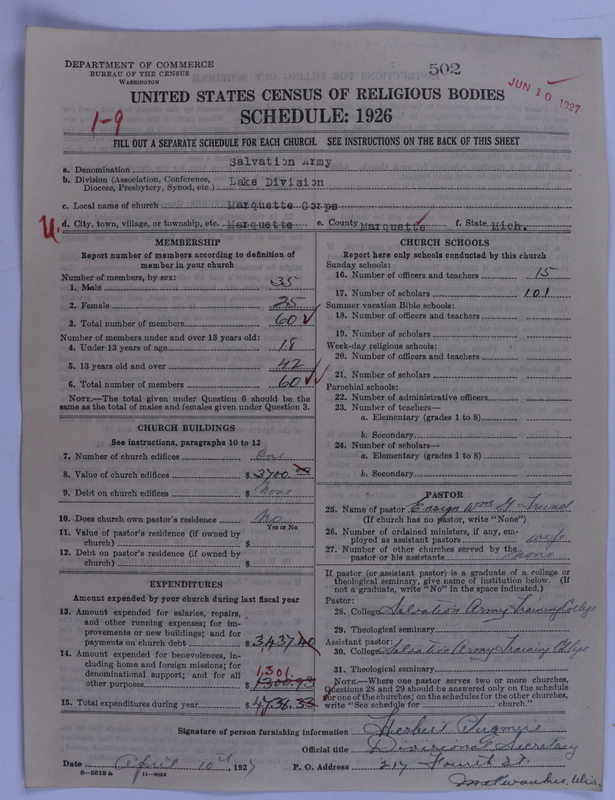 DEPARTMENT OF COMMERCE
BUREAU OF THE CENSUS
WASHINGTON
502
JUN 10 1927
UNITED STATES CENSUS OF RELIGIOUS BODIES
SCHEDULE: 1926
1-9
FILL OUT A SEPARATE SCHEDULE FOR EACH CHURCH. SEE INSTRUCTIONS ON THE BACK OF THIS SHEET
a. Denomination Salvation Army
b. Division (Association, Conference, Diocese, Presbytery, Synod, etc.) Lake Division
c. Local name of church Marquette Corps
U. d. City, town, village, or township, etc. Marquette e. County Marquette f. State Mich.
MEMBERSHIP
Report number of members according to definition of
member in your church
Number of members, by sex:
1. Male 35
2. Female 25
3. Total number of members 60
Number of members under and over 13 years old:
4. Under 13 years of age 18
5. 13 years old and over 42
6. Total number of members 60
NOTE.—The total given under Question 6 should be the
same as the total of males and females given under Question 3.
CHURCH BUILDINGS
See instructions, paragraphs 10 to 12
7. Number of church edifices One
8. Value of church edifices $ 3700.00
9. Debt on church edifices $ None
10. Does church own pastor's residence No
Yes or No
11. Value of pastor's residence (if owned by
church) $
12. Debt on pastor's residence (if owned by
church) $
EXPENDITURES
Amount expended by your church during last fiscal year
13. Amount expended for salaries, repairs,
and other running expenses; for im-
provements or new buildings; and for
payments on church debt $ 3,437.40
14. Amount expended for benevolences, in-
cluding home and foreign missions; for
denominational support; and for all 1,301.
other purposes $ 1300.93
15. Total expenditures during year $ 4738.33
CHURCH SCHOOLS
Report here only schools conducted by this church
Sunday schools:
16. Number of officers and teachers 15
17. Number of scholars 101
Summer vacation Bible schools:
18. Number of officers and teachers
19. Number of scholars
Week-day religious schools:
20. Number of officers and teachers
21. Number of scholars
Parochial schools:
22. Number of administrative officers
23. Number of teachers—
a. Elementary (grades 1 to 8)
b. Secondary
24. Number of scholars—
a. Elementary (grades 1 to 8)
b. Secondary
PASTOR
25. Name of pastor Ensign Wm G.
(If church has no pastor, write "None")
26. Number of ordained ministers, if any, em-
ployed as assistant pastors wife
27. Number of other churches served by the
pastor or his assistants None
If pastor (or assistant pastor) is a graduate of a college or
theological seminary, give name of institution below. (If
not a graduate, write "No" in the space indicated.)
Pastor:
28. College Salvation Army Training College
29. Theological seminary
Assistant pastor:
30. College Salvation Army Training College
31. Theological seminary
NOTE.—Where one pastor serves two or more churches,
Questions 28 and 29 should be answered only on the schedule
for one of the churches; on the schedules for the other churches,
write "See schedule for church."
Signature of person furnishing information Herbert
Official title Divisional Secretary
Date April 10th, 1927 P. O. Address 217 Fourth St.
8—5518a 11—9034 Milwaukee, Wis.